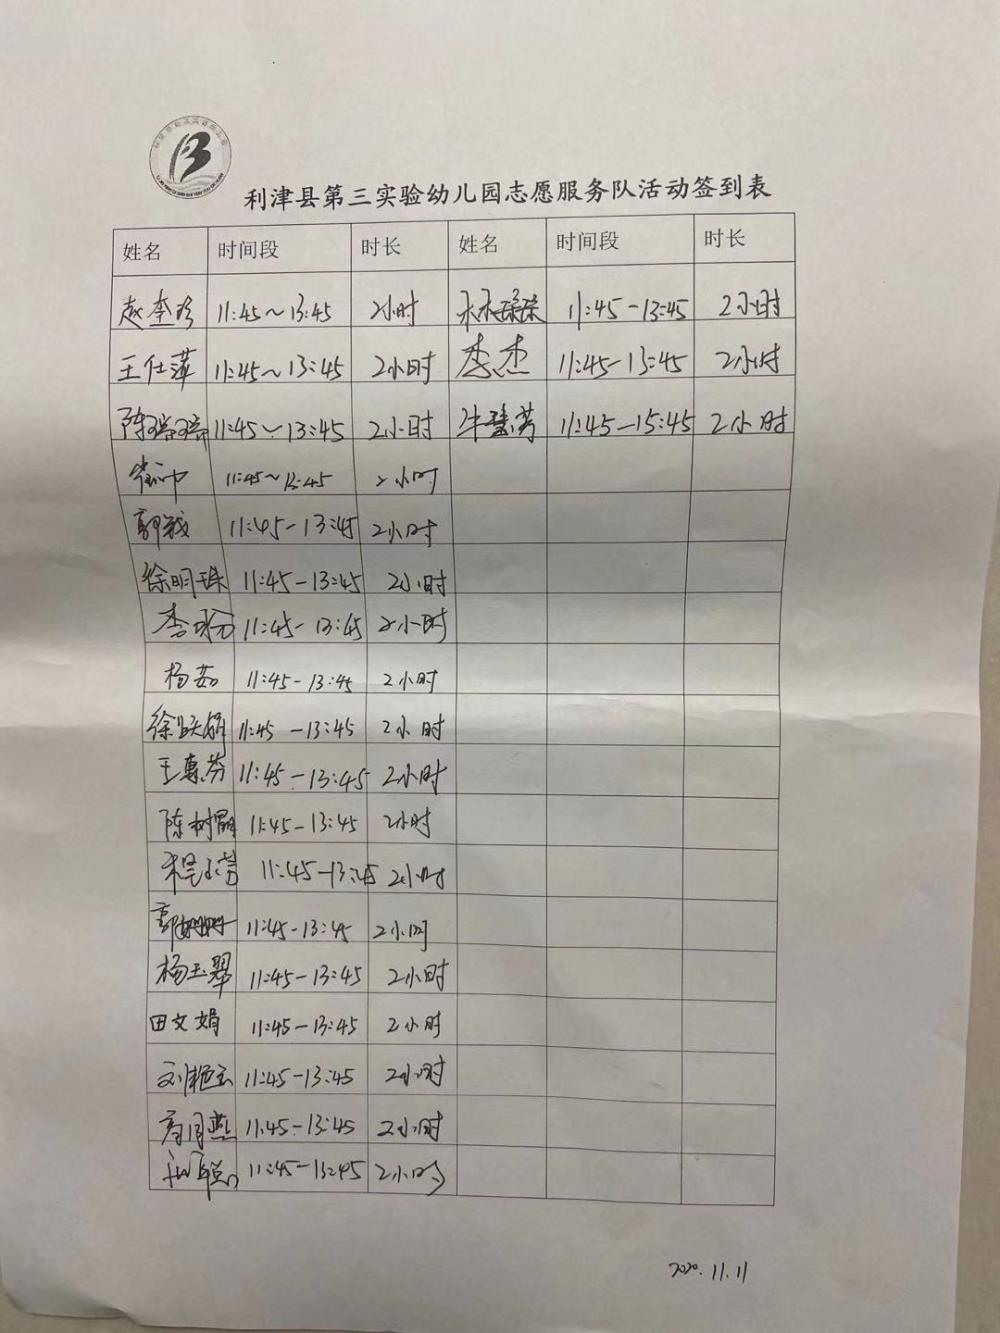 利津县第三实验幼儿园志愿服务队活动签到表
姓名 时间段 时长 姓名 时间段 时长
赵奎珍 11:45~13:45 2小时 11:45-13:45 2小时
王仕萍 11:45~13:45 2小时 李杰 11:45-13:45 2小时
陈瑶瑶 11:45~13:45 2小时 牛慧芳 11:45-15:45 2小时
11:45~13:45 2小时
郭 11:45-13:45 2小时
徐明珠 11:45-13:45 2小时
李 11:45-13:45 2小时
杨茹 11:45-13:45 2小时
徐跃娟 11:45-13:45 2小时
王惠芬 11:45-13:45 2小时
陈树丽 11:45-13:45 2小时
程玉芳 11:45-13:45 2小时
郭姗姗 11:45-13:45 2小时
杨玉翠 11:45-13:45 2小时
田文娟 11:45-13:45 2小时
刘艳玉 11:45-13:45 2小时
月燕 11:45-13:45 2小时
聪 11:45-13:45 2小时
2020.11.11